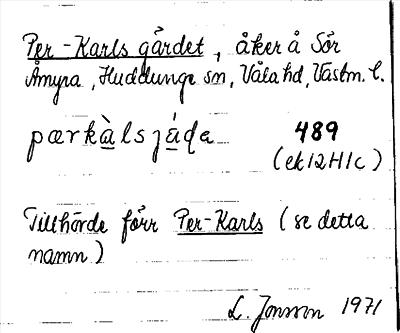 Per-Karls gärdet, åker å Sör
Åmyra, Huddunge sn, Våla hd, Västm. l.
pærkàlsjáḍa 489
(ek12H1c)
Tillhörde förr Per-Karls (se detta
namn)
L. Jonsson 1971